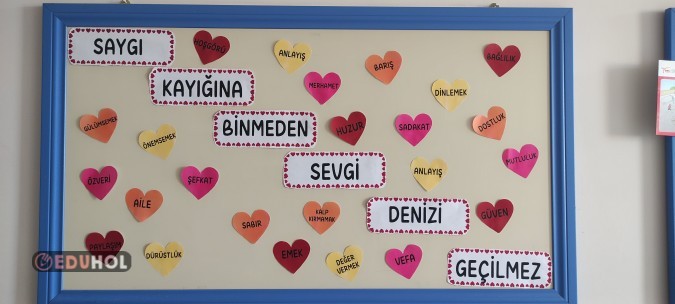 SAYGI
KAYIĞINA
BİNMEDEN
SEVGİ
DENİZİ
GEÇİLMEZ
HOŞGÖRÜ
ANLAYIŞ
BARIŞ
BAĞLILIK
MERHAMET
DİNLEMEK
GÜLÜMSEMEK
ÖNEMSEMEK
HUZUR
SADAKAT
DOSTLUK
MUTLULUK
ÖZVERİ
ŞEFKAT
ANLAYIŞ
AİLE
SABIR
KALP
KIRMAMAK
GÜVEN
PAYLAŞIM
DÜRÜSTLÜK
EMEK
DEĞER
VERMEK
VEFA
EDUHOL